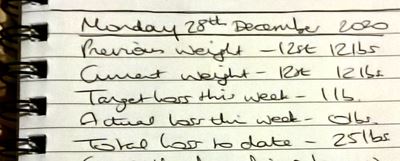 Monday 28th December 2020
Previous weight - 12st 12lbs
Current weight - 12st 12lbs
Target loss this week - 1lb.
Actual loss this week - 0lbs.
Total loss to date - 25lbs